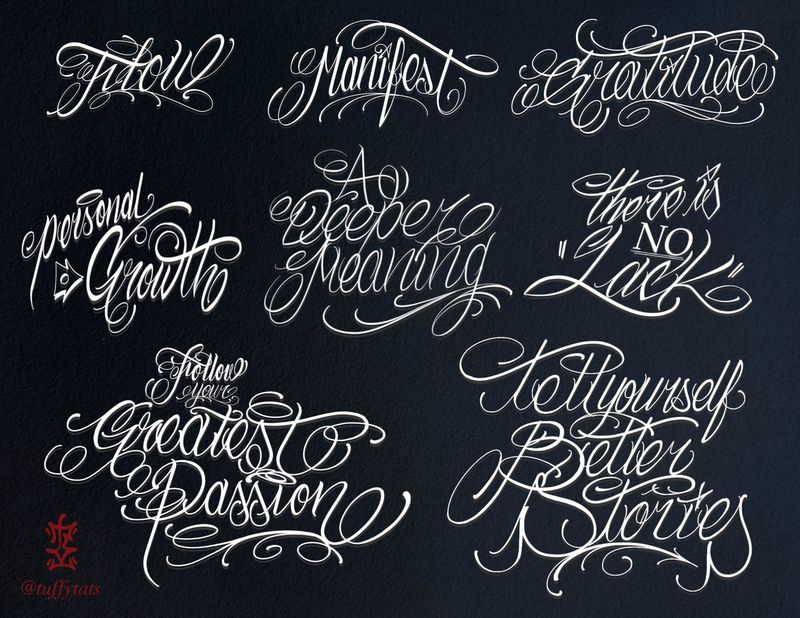 Manifest
Gratitude
personal
Growth
A
Deeper
Meaning
"there is
NO
Lack"
Follow
your
Greatest
Passion
tell yourself
Better
Stories
@tuffytats